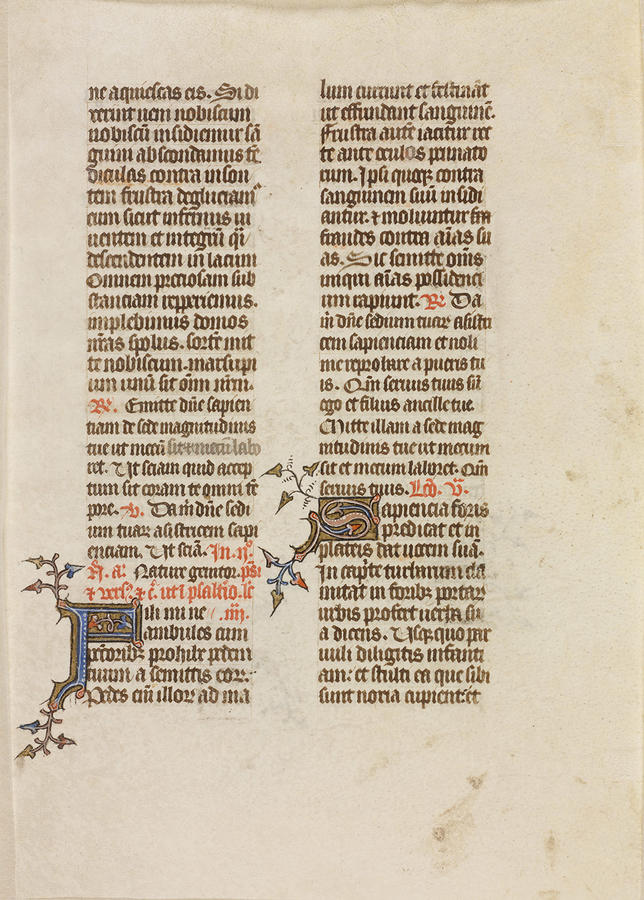 ne aquiescas eis. Si di
xerint ueni nobiscum
nobiscū insidiemur sā
guini abscondamus tē
diculas contra inson
tem frustra deglutiam⁹
eum sicut infernus ui
uentem et integrū q̄i
descendentem in lacum
Omnem preciosam sub
stanciam repperiemus.
implebimus domos
nr̄as spolijs. sortē mit
te nobiscum. marsupi
um unū sit om̄i nr̄m.
R̄. Emitte dn̄e sapien
tiam de sede magnitudinis
tue ut mecū sit et mecū labo
ret. Ut sciam quid accep
tum sit coram te omni tē
pore. v. Da m̄ dn̄e sedi
um tuaꝝ asistricem sapi
enciam. Ut sciā. In .ij.
N̄. a. Nature genitor. ps̄i
et vers. et c̄. ut i psalt̄io. le
Fili mi ne .iiij.
ambules cum
pctoribꝫ prohibe pedem
tuum a semitis eorꝫ.
Pedes eī illoꝝ ad ma
lum currunt et festināt
ut effundant sanguinē.
Frustra autē iacitur ret
te ante oculos pennato
rum. Ipsi quoqꝫ contra
sanguinem suū insidi
antur. et moliuntur
fraudes contra aīas su
as. Sic semite om̄s
iniqui aīas possidenci
um rapiunt. R̄. Da
m̄ dn̄e sedium tuaꝝ asist
cem sapienciam et noli
me reprobare a pueris tu
is. Qm̄ seruus tuus sū
ego et filius ancille tue.
Mitte illam a sede mag
nitudinis tue ut mecum
sit et mecum laboret. Qm̄
seruus tuus. Lc̄o. v̄.
Sapiencia foris
predicat et in
plateis dat uocem suā.
In capite turbarum cla
mitat in foribꝫ portaꝝ
urbis profert uerba su
a dicens. Usqꝫquo par
uuli diligitis infanti
am: et stulti ea que sibi
sunt noxia cupient: et